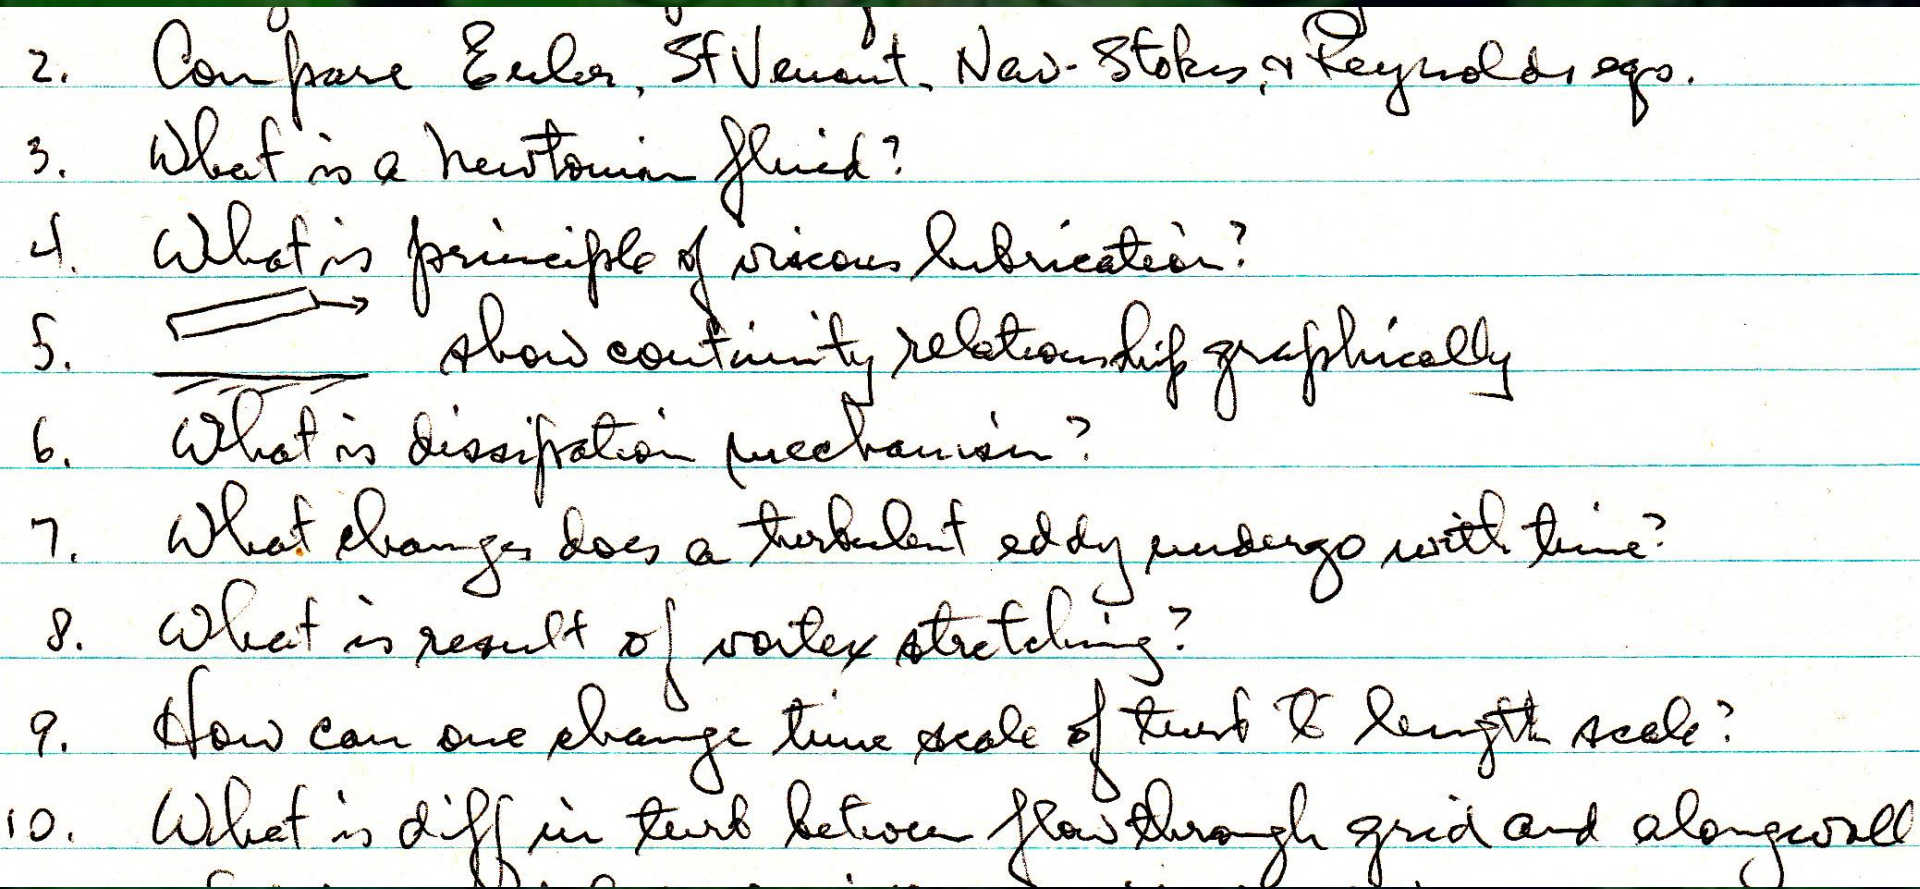 2. Compare Euler, St Venant, Nav-Stokes, & Reynolds eqs.
3. What is a newtonian fluid?
4. What is principle of viscous lubrication?
5. show continuity relationship graphically
6. What is dissipation mechanism?
7. What changes does a turbulent eddy undergo with time?
8. What is result of vortex stretching?
9. How can one change time scale of turb to length scale?
10. What is diff in turb between flow through grid and along wall